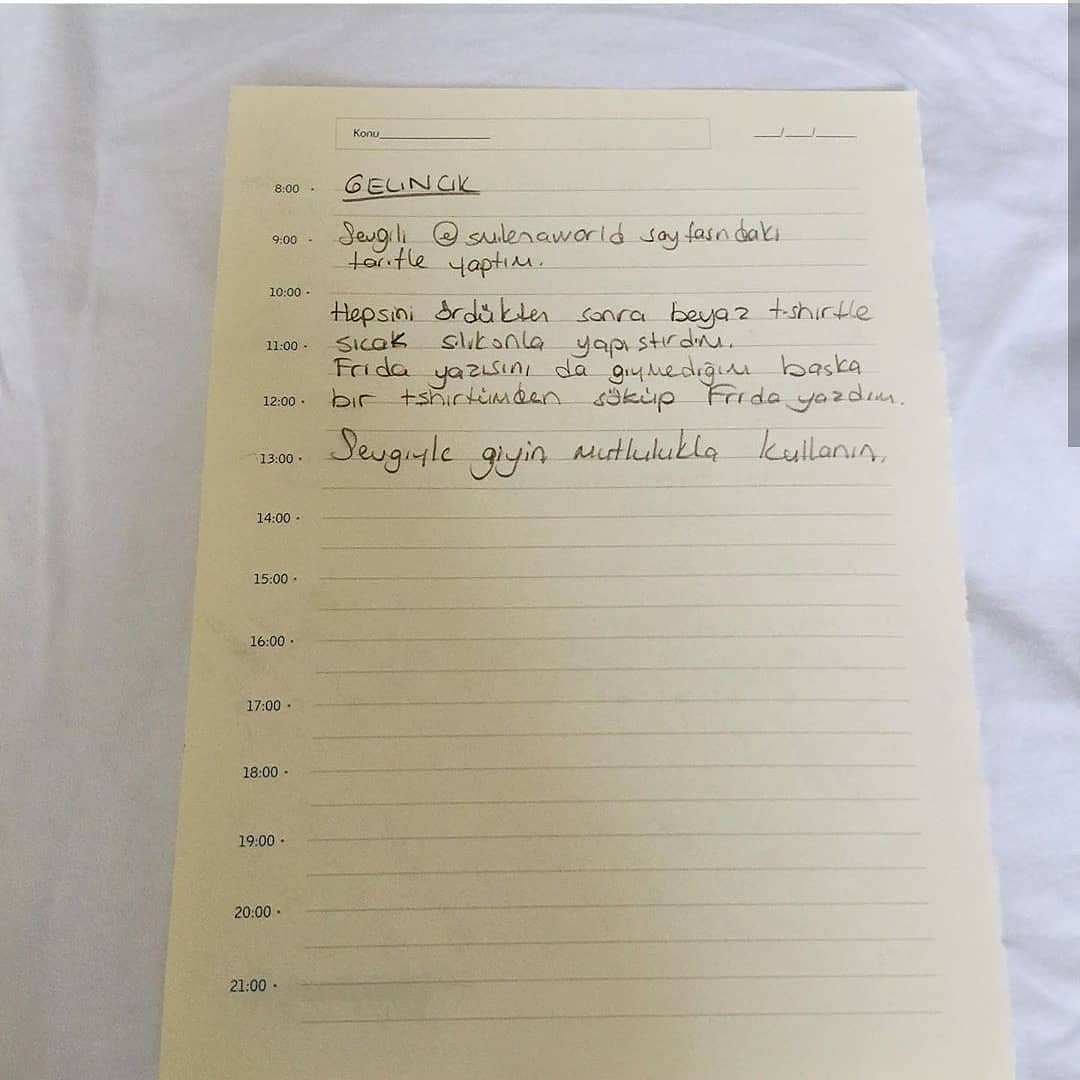 Konu____________ ___/___/____
8:00 · GELİNCİK
9:00 · Sevgili @sulenaworld sayfasındaki
tarifle yaptım.
10:00 ·
Hepsini ördükten sonra beyaz t-shirtle
11:00 · sıcak silikonla yapıştırdım.
Frida yazısını da giymediğim başka
12:00 · bir tshirtümden söküp Frida yazdım.
13:00 · Sevgiyle giyin mutlulukla kullanın.
14:00 ·
15:00 ·
16:00 ·
17:00 ·
18:00 ·
19:00 ·
20:00 ·
21:00 ·